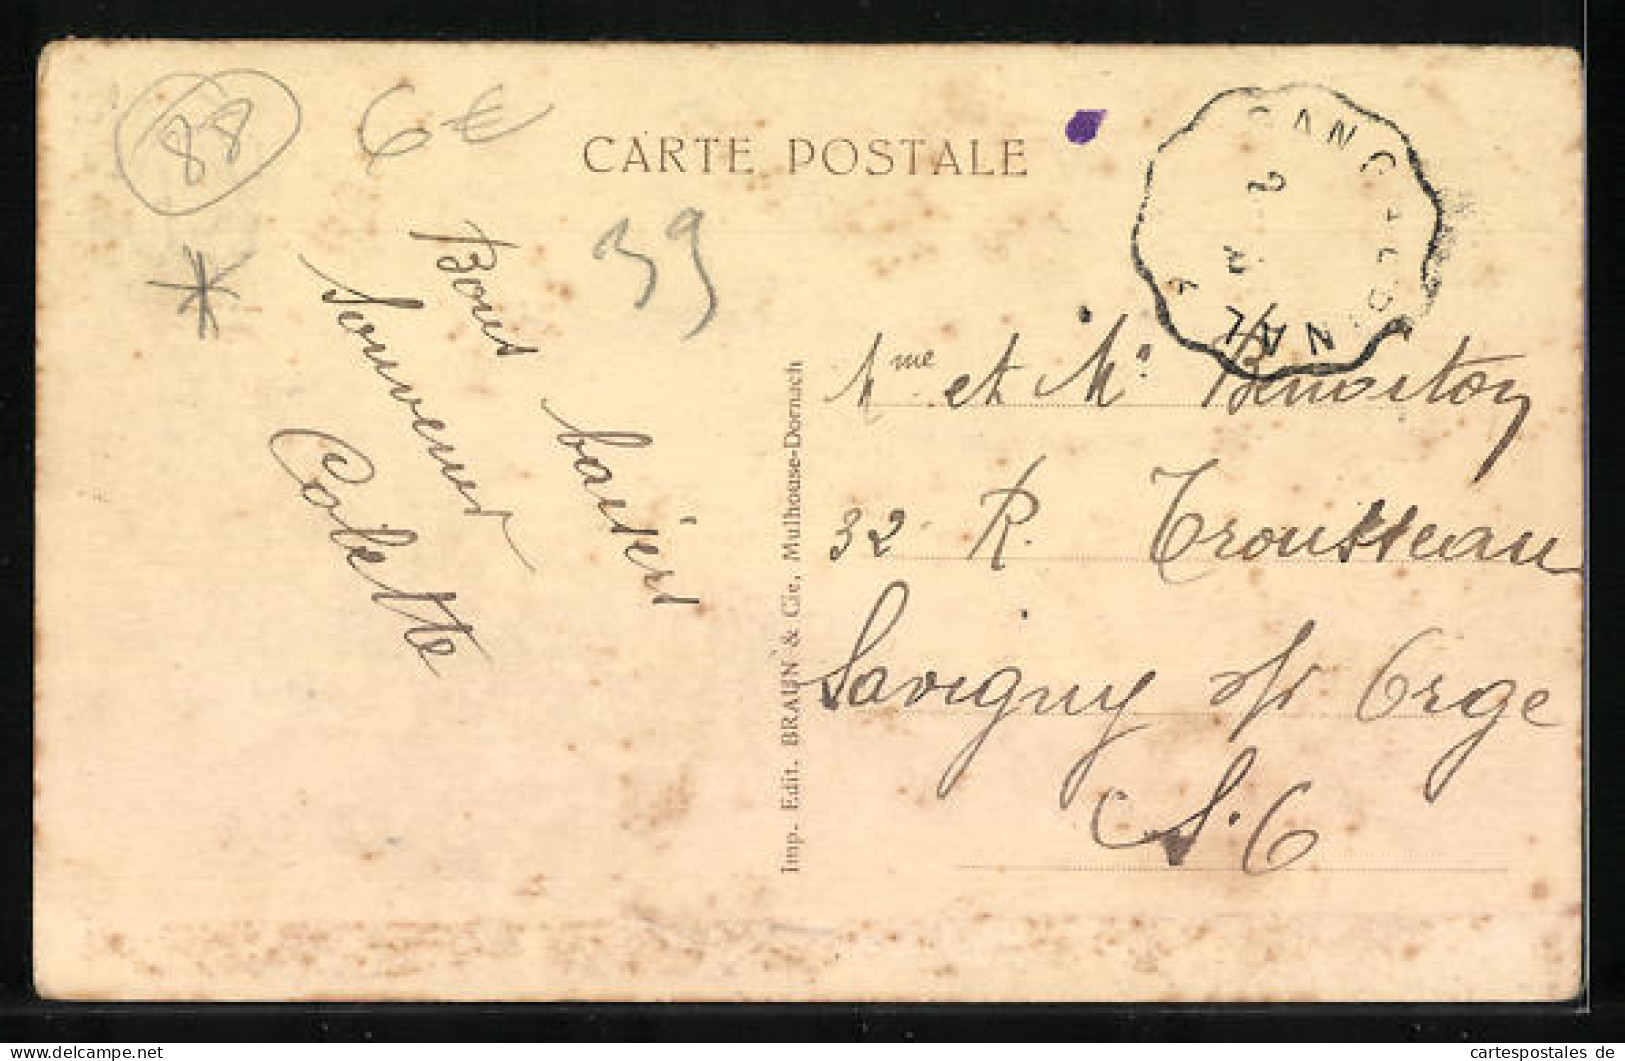 88
6€
CARTE POSTALE
39
Bons baisers
Souvenir
Colette
Imp- Edit. BRAUN & Cie, Mulhouse-Dornach
Mme et Mr Benoiton
32 R. Trousseau
Savigny s/ Orge
S.O
cartespostales de